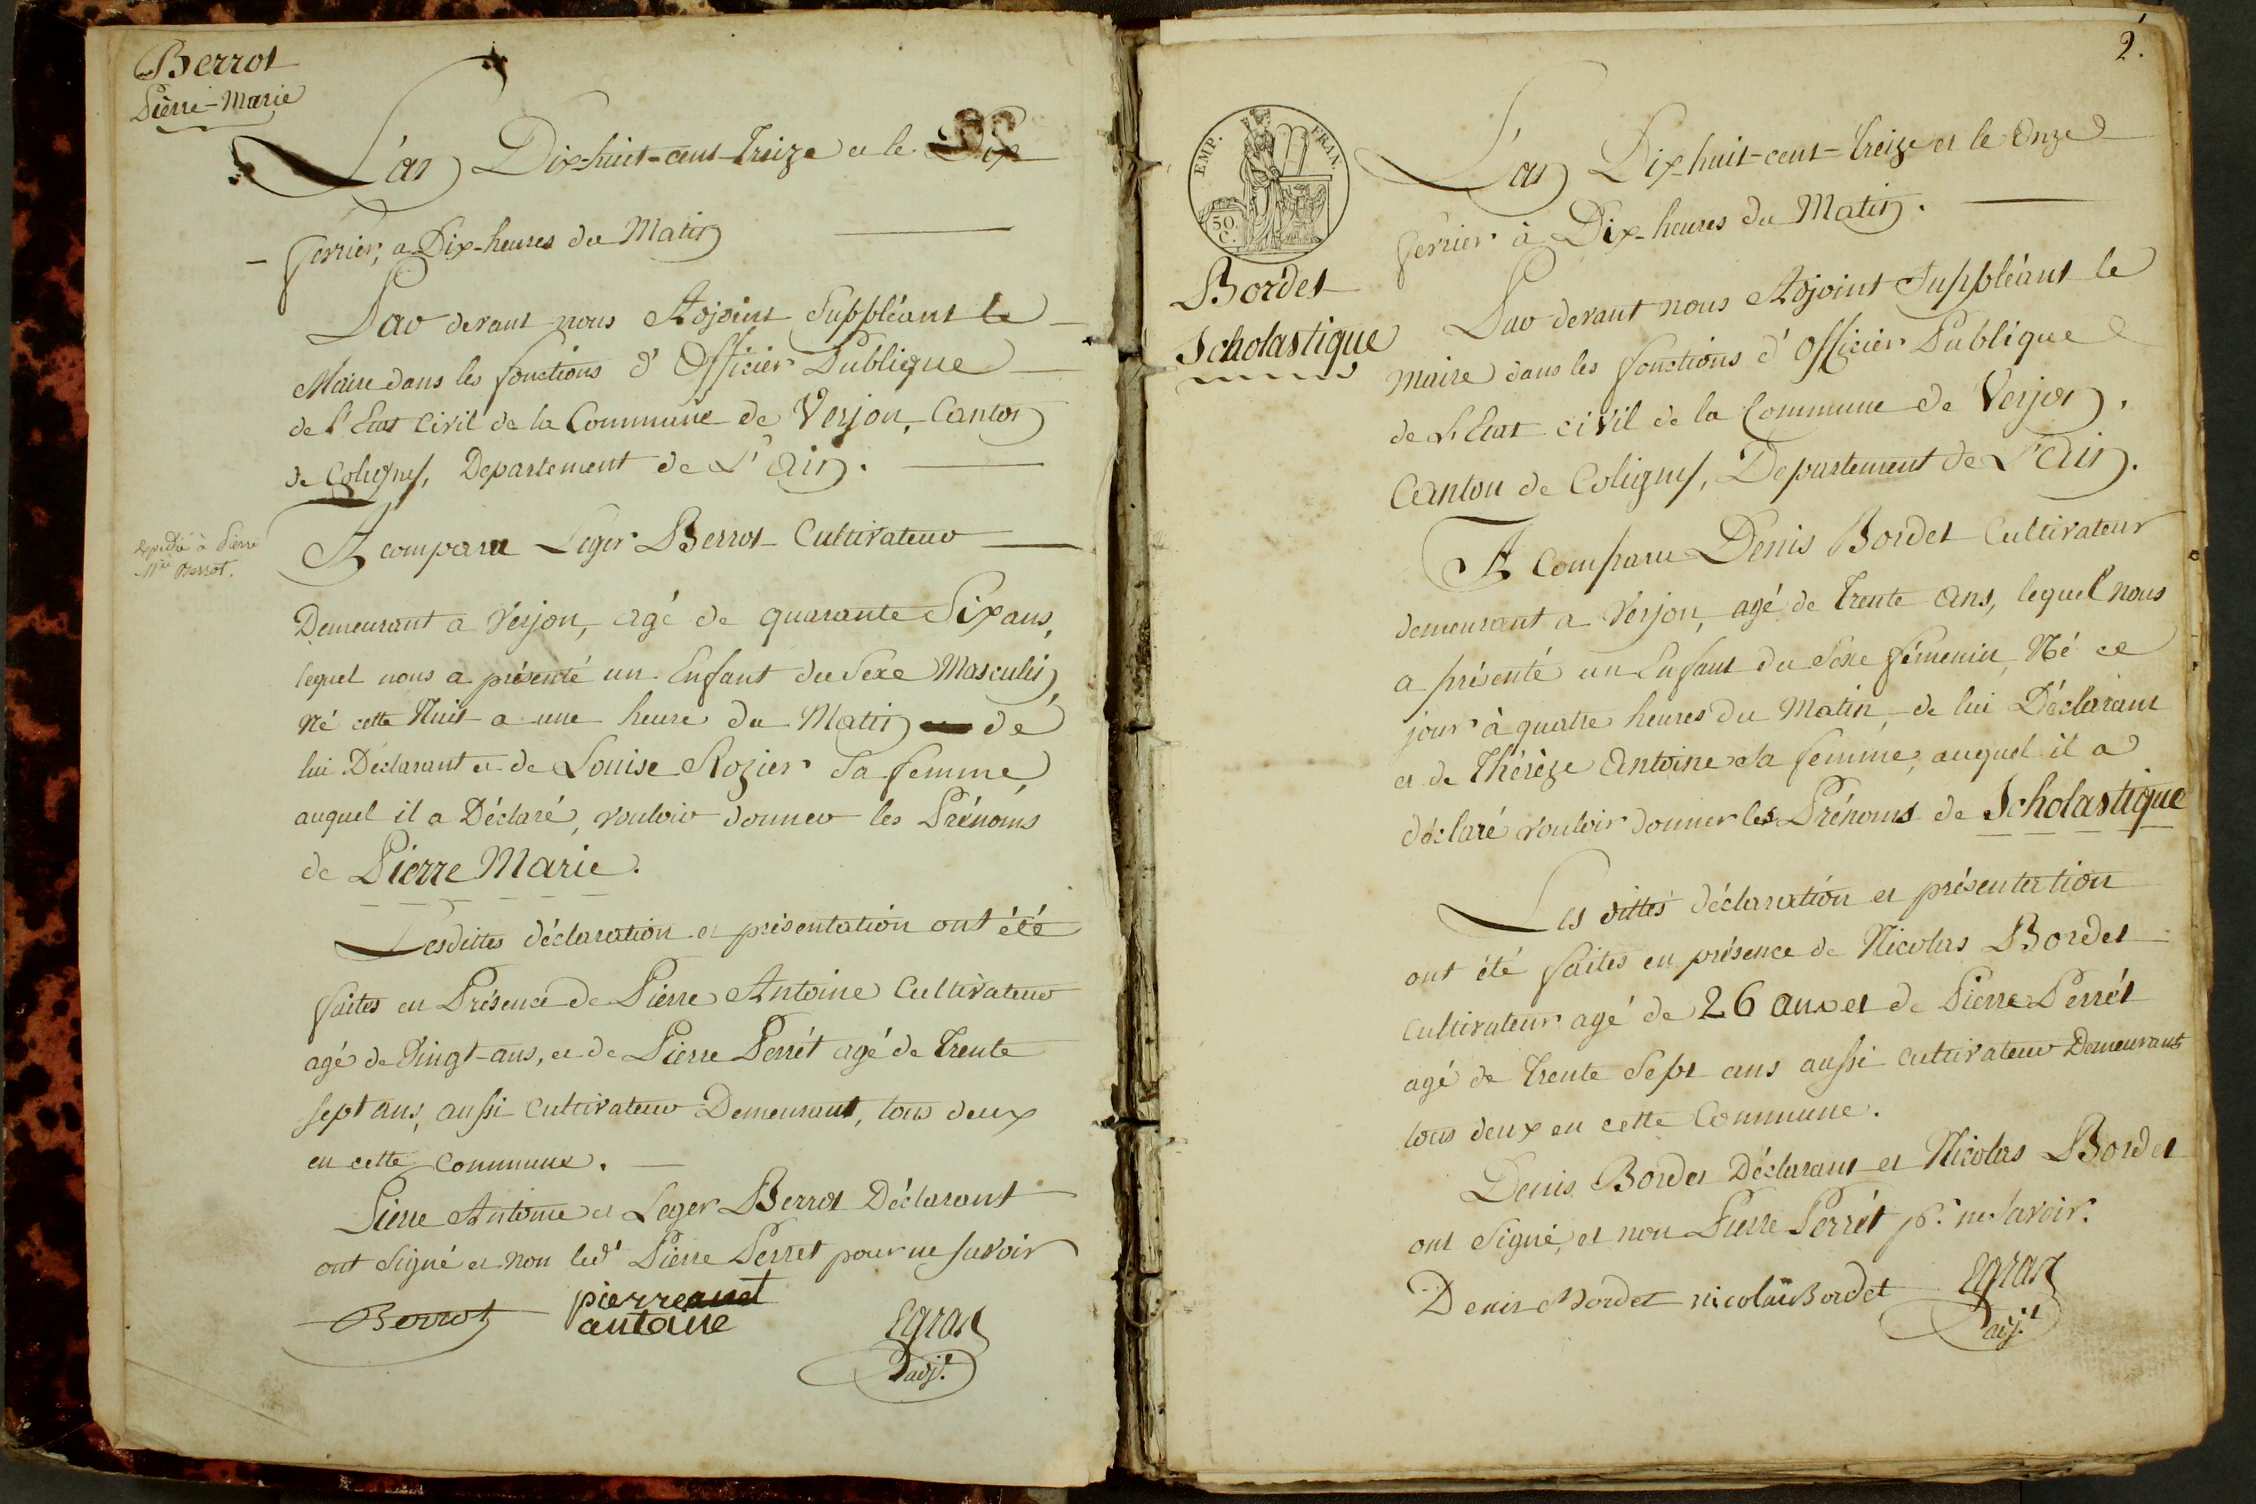 Berrot
Pièrre-Marie
L'an Dix-huit-cent-treize et le Dix
fevrier, a Dix-heures du Matin
Par devant nous Adjoint Suppléant le
Maire dans les fonctions d'Officier Publique
de l'Etat Civil de la Commune de Verjon, Canton
de Coligny, Departement de L'ain.
A comparu Leger Berrot Cultivateur
expédié à Pierre
Mie Berrot.
Demeurant a Verjon, agé de quarante Six ans,
lequel nous a présenté un Enfant du Sexe Masculin,
Né cette Nuit a une heure du Matin de
lui Déclarant et de Louise Rozier Sa femme,
auquel il a Déclaré, vouloir donner les Prénoms
de Pierre Marie.
Lesdittes déclaration et présentation ont été
faites en Présence de Pierre Antoine Cultivateur
agé de Vingt-ans, et de Pierre Perrét agé de trente
sept ans, aussi Cultivateur Demeurant, tous deux
en cette Commune.
Pierre Antoine et Leger Berrot Déclarant
ont Signé et non ledt Pierre Perret pour ne Savoir
Berrot
pierre
antoine
Egraz
adjt
2.
EMP. FRAN.
50
C.
L'an Dix-huit-cent-treize et le Onze
fevrier à Dix-heures du Matin.
Bordet
Scholastique
Par devant nous Adjoint Suppléant le
maire dans les fonctions d'Officier Publique
de L'Etat civil de la Commune de Verjon,
Canton de Coligny, Departement de L'ain.
A Comparu Denis Bordet Cultivateur
demeurant a Verjon, agé de trente ans, lequel nous
a présenté un Enfant du Sexe fémenin, Né ce
jour à quatre heures du Matin, de lui Déclarant
et de Thérèze Antoine Sa femme, auquel il a
déclaré vouloir donner les Prénoms de Scholastique
Les dittes déclaration et présentation
ont été faites en présence de Nicolas Bordet
Cultivateur agé de 26 ans et de Pierre Perrét
agé de trente Sept ans aussi cultivateur Demeurants
tous deux en cette Commune.
Denis Bordet Déclarant et Nicolas Bordet
ont Signé, et non Pierre Perrét pr. ne Savoir.
Denis Bordet nicolas Bordet Egraz
adjt